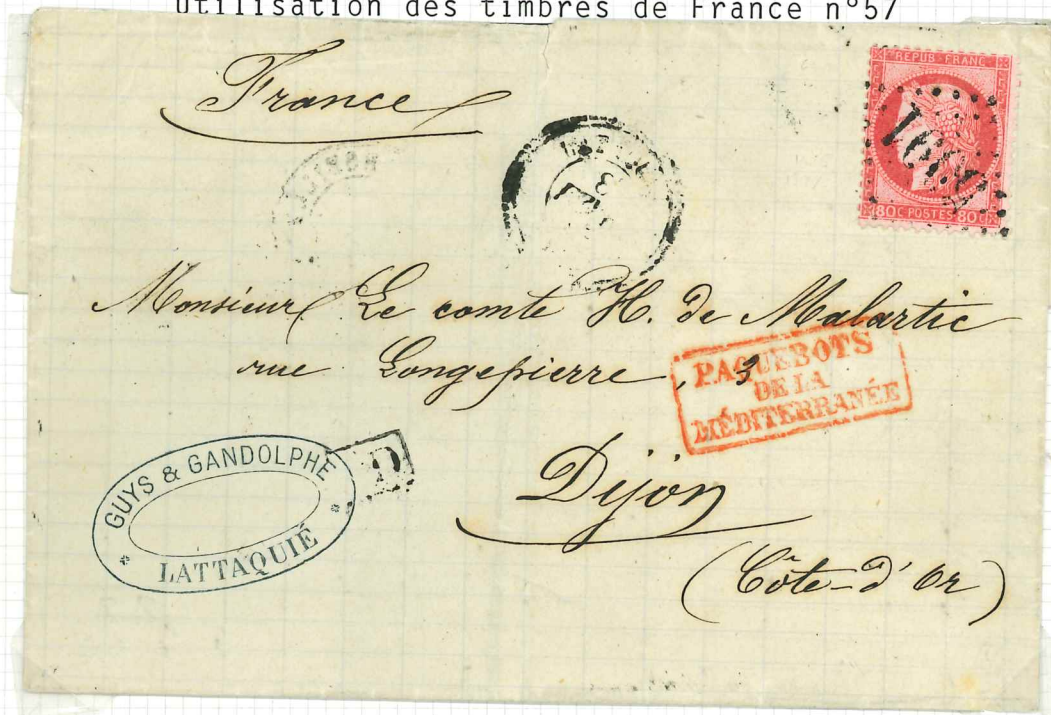 utilisation des timbres de France n°57
France
REPUB·FRANC
80C POSTES 80C
Monsieur Le comte H. de Malartic
rue Longepierre, 3
PAQUEBOTS
DE LA
MÉDITERRANÉE
Dijon
(Côte-d'Or)
GUYS & GANDOLPHE
LATTAQUIÉ
PD